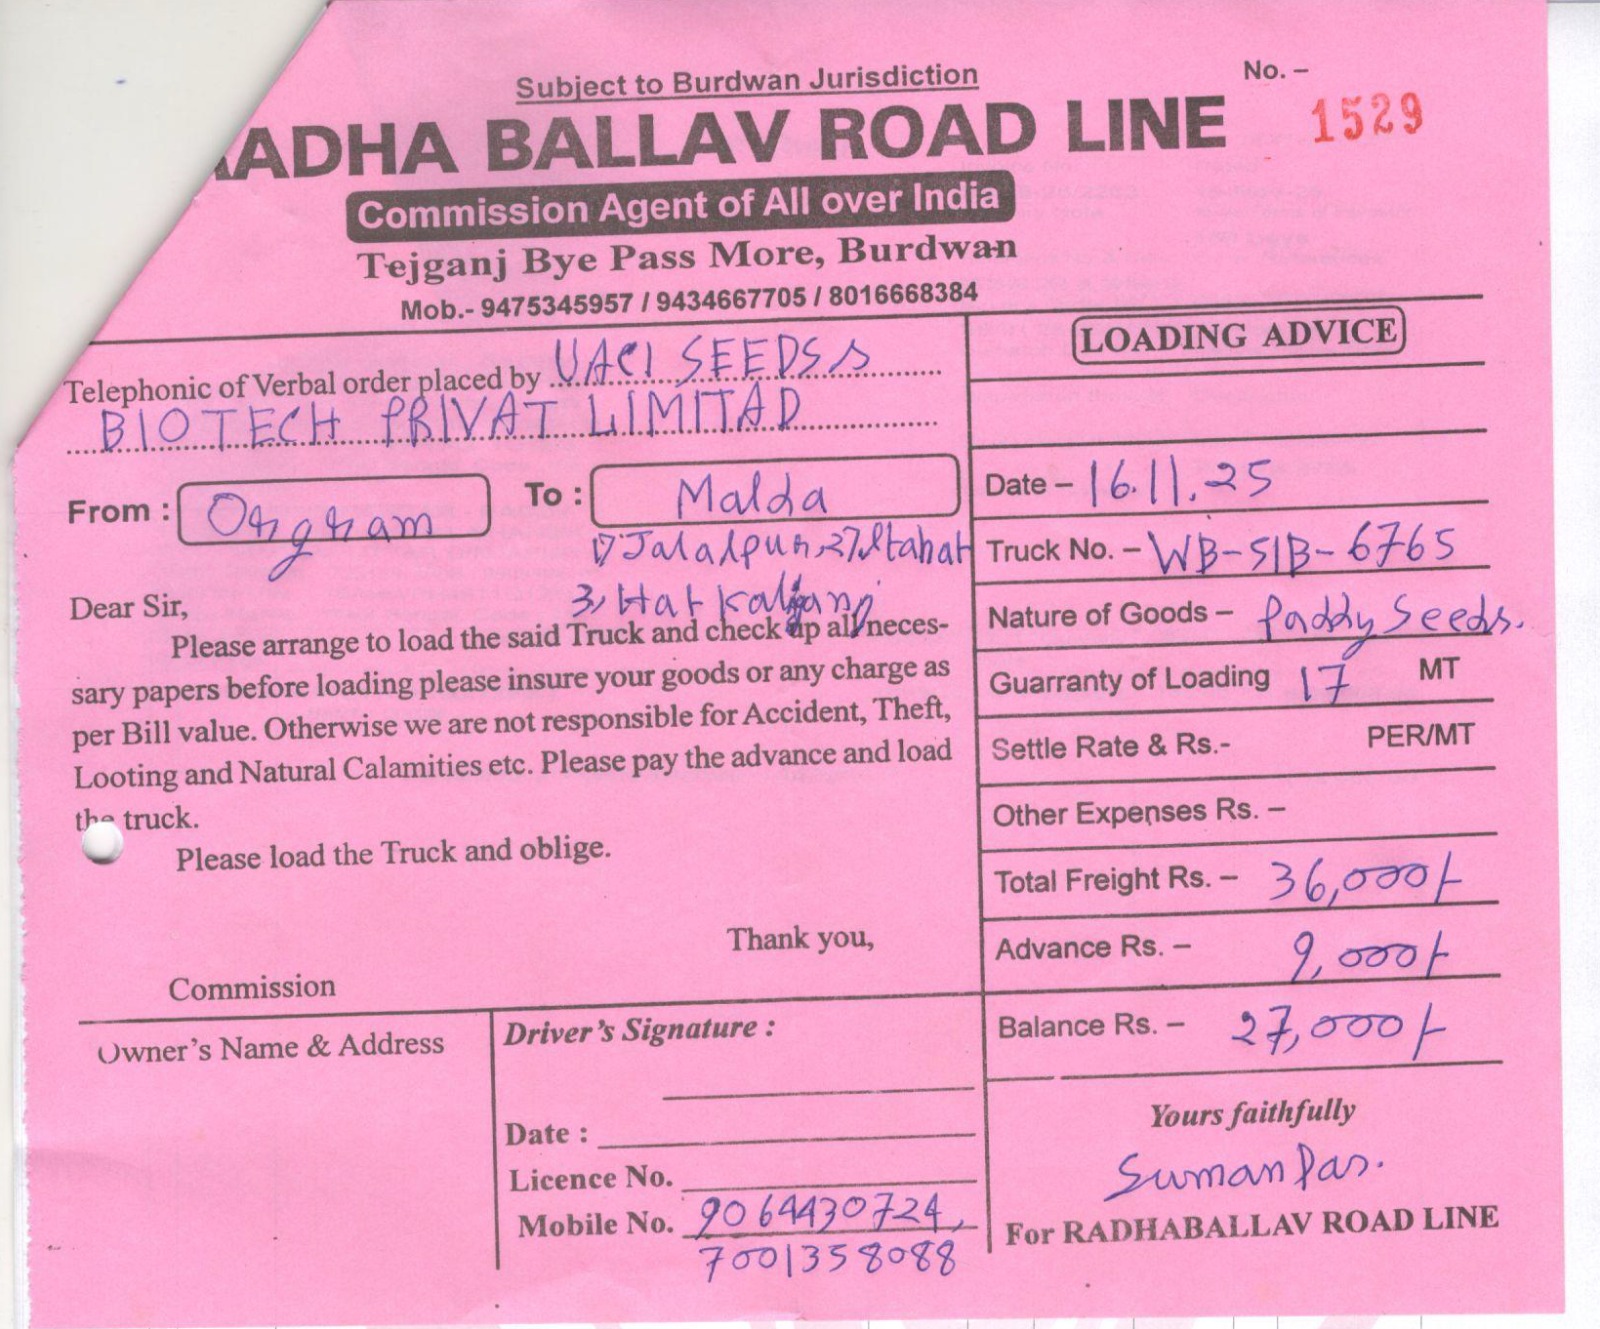 Subject to Burdwan Jurisdiction
No. –
1529
RADHA BALLAV ROAD LINE
Commission Agent of All over India
Tejganj Bye Pass More, Burdwan
Mob.- 9475345957 / 9434667705 / 8016668384
Telephonic of Verbal order placed by UACI SEEDS
BIOTECH PRIVAT LIMITAD
From : Orgram To : Malda
1) Jalalpur, 2) Itahar
3, Hat Kaliganj
Dear Sir,
Please arrange to load the said Truck and check up all neces-
sary papers before loading please insure your goods or any charge as
per Bill value. Otherwise we are not responsible for Accident, Theft,
Looting and Natural Calamities etc. Please pay the advance and load
the truck.
Please load the Truck and oblige.
Thank you,
Commission
Owner's Name & Address
Driver's Signature :
Date :
Licence No.
Mobile No. 9064430724,
7001358088
LOADING ADVICE
Date – 16.11.25
Truck No. – WB-51B-6765
Nature of Goods – Paddy Seeds.
Guarranty of Loading 17 MT
Settle Rate & Rs.- PER/MT
Other Expenses Rs. –
Total Freight Rs. – 36,000/-
Advance Rs. – 9,000/-
Balance Rs. – 27,000/-
Yours faithfully
Suman Das.
For RADHABALLAV ROAD LINE